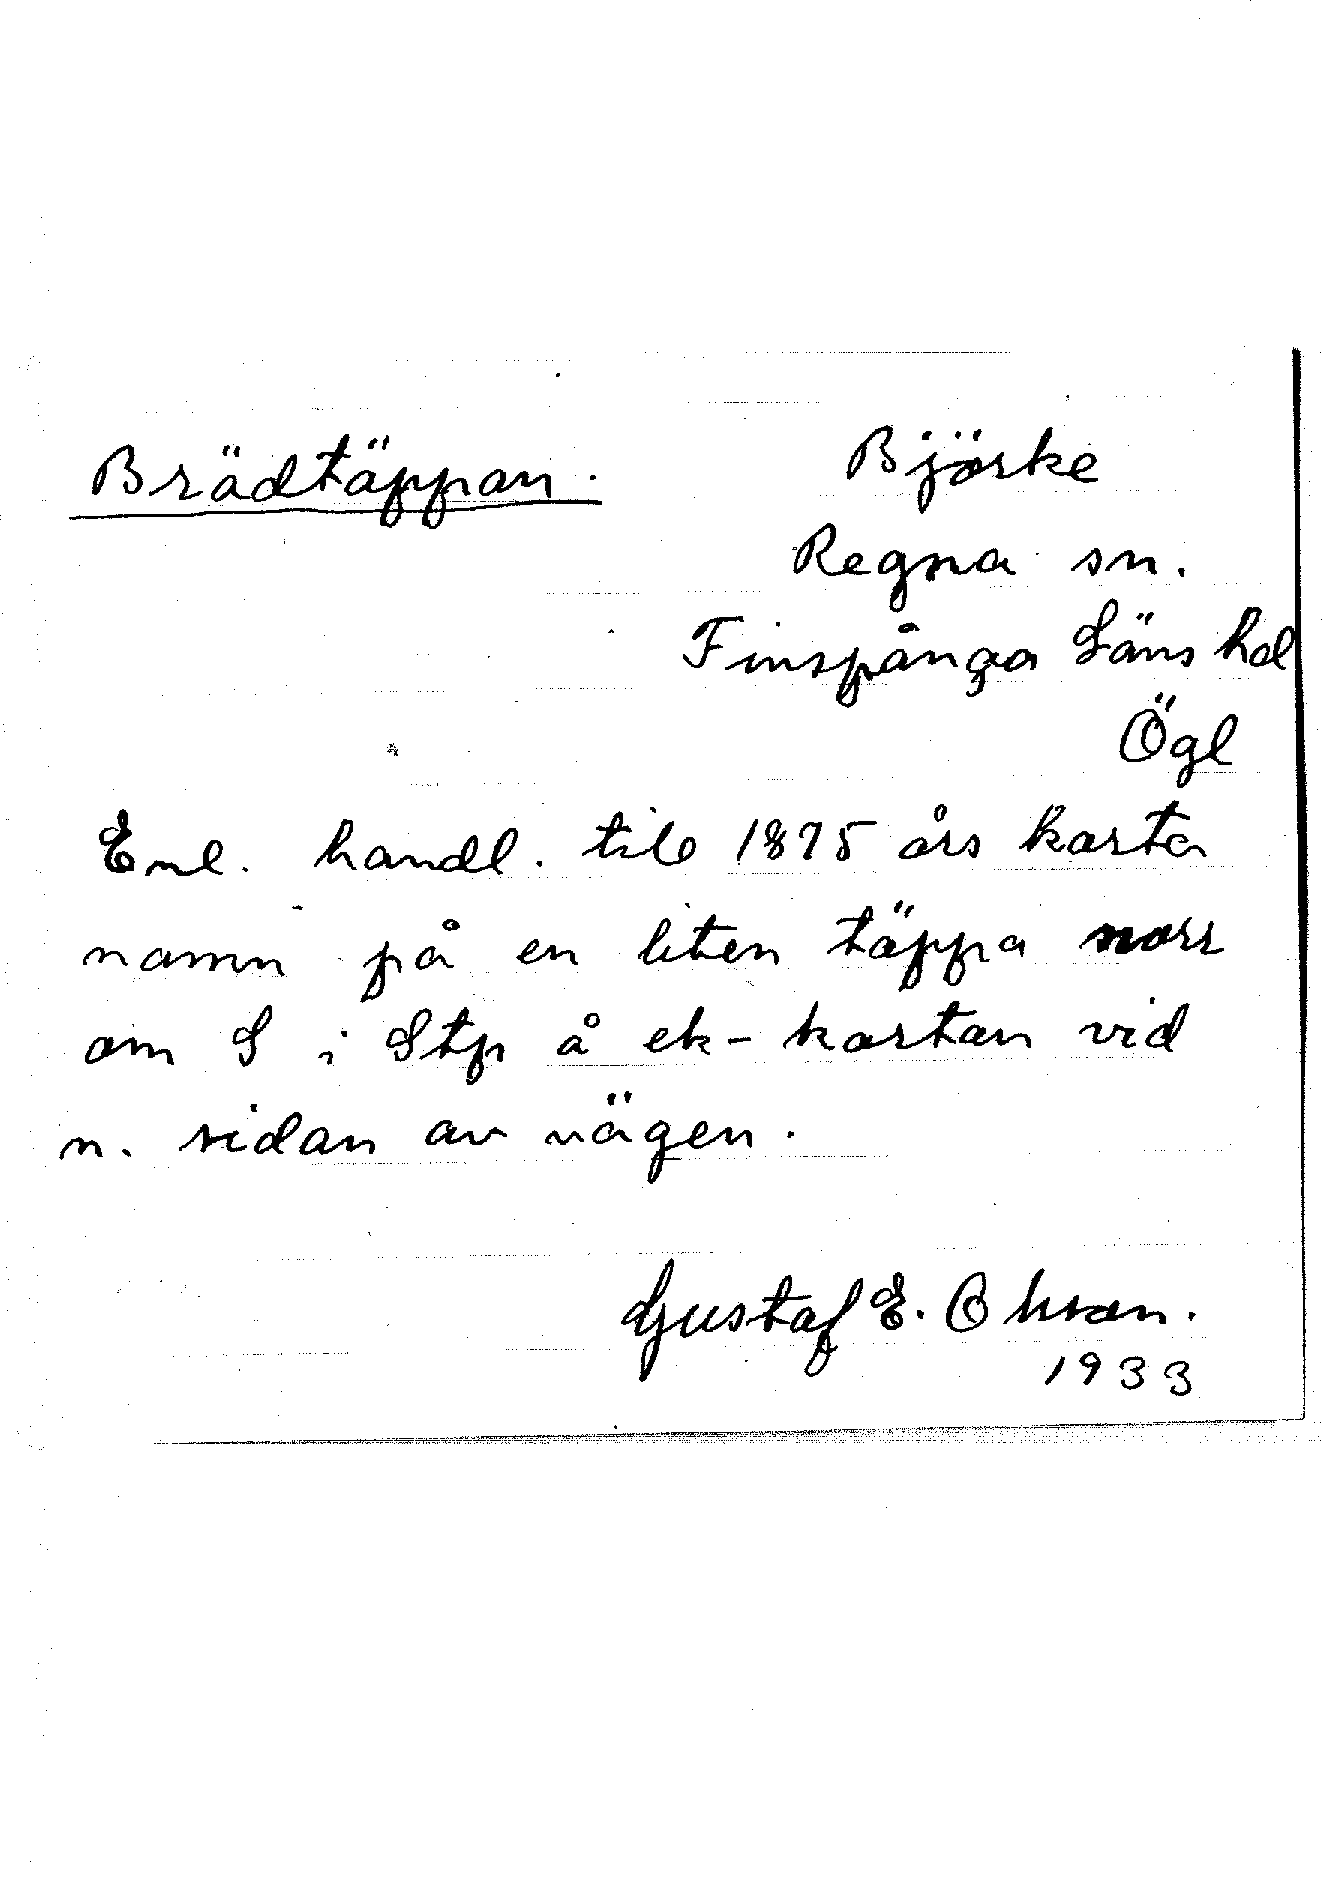 Brädtäppan.
Björke
Regna sn.
Finspånga Läns hd
Ögl
Enl. handl. till 1875 års karta
namn på en liten täppa norr
om S i Stp å ek-kartan vid
n. sidan av vägen.
Gustaf E. Ohson.
1933